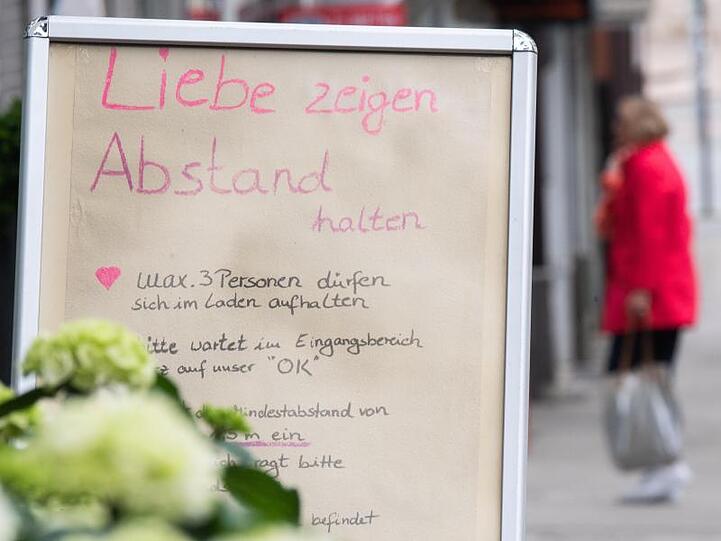 Liebe zeigen
Abstand
halten
max. 3 Personen dürfen
sich im Laden aufhalten
wartet im Eingangsbereich
auf unser "OK"
Mindestabstand von
m ein
bitte
befindet